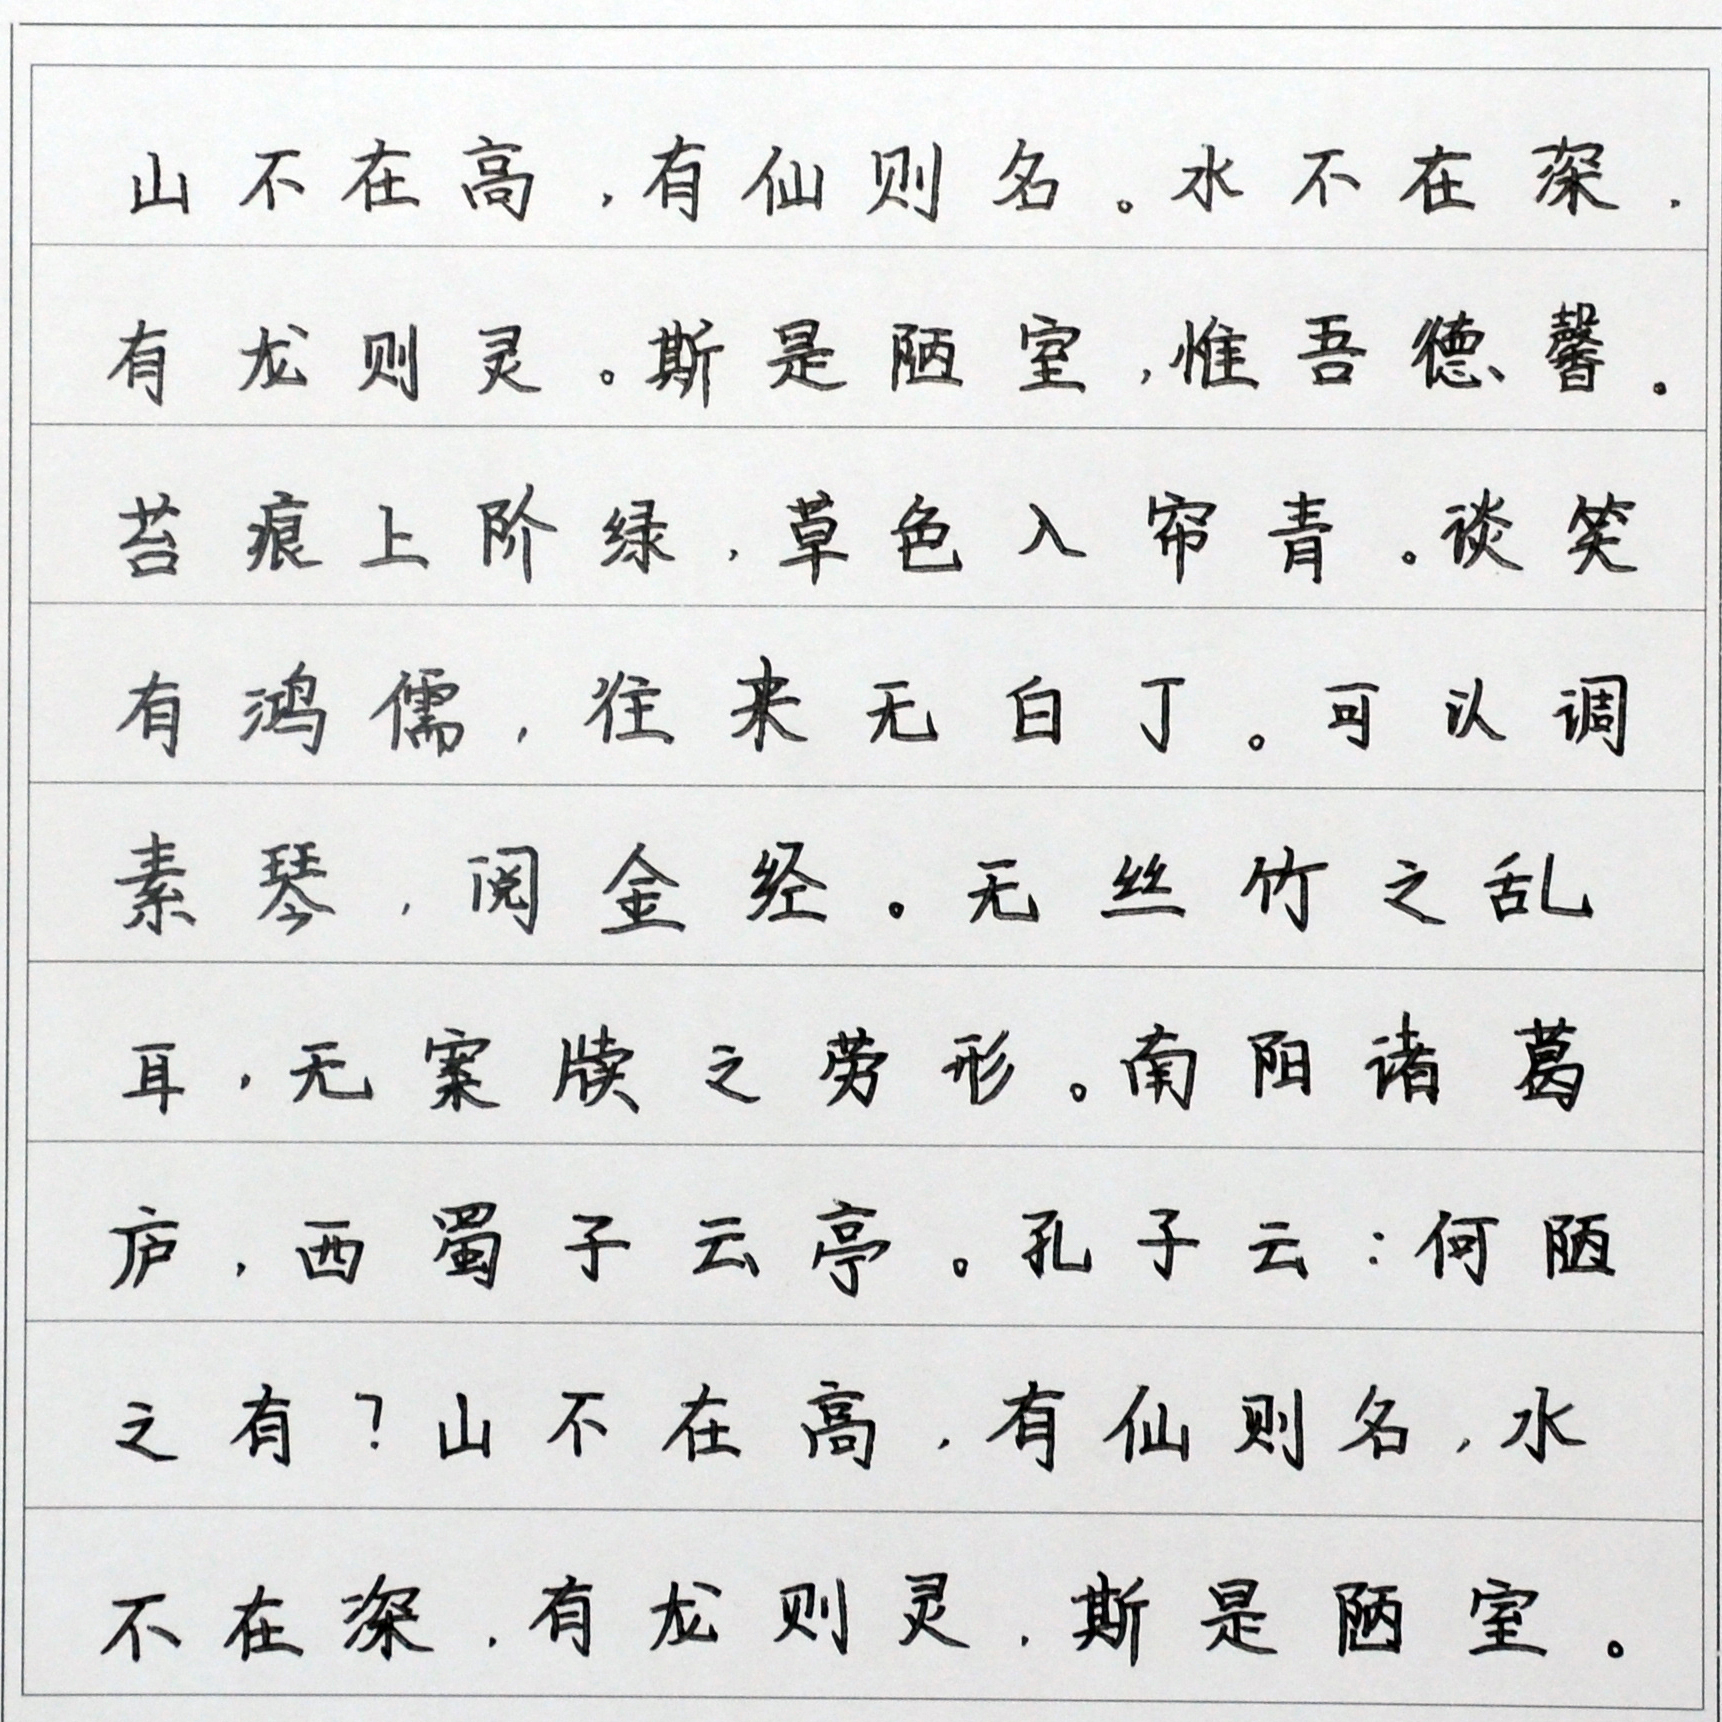 山不在高，有仙则名。水不在深，
有龙则灵。斯是陋室，惟吾德馨。
苔痕上阶绿，草色入帘青。谈笑
有鸿儒，往来无白丁。可以调
素琴，阅金经。无丝竹之乱
耳，无案牍之劳形。南阳诸葛
庐，西蜀子云亭。孔子云：何陋
之有？山不在高，有仙则名，水
不在深，有龙则灵，斯是陋室。